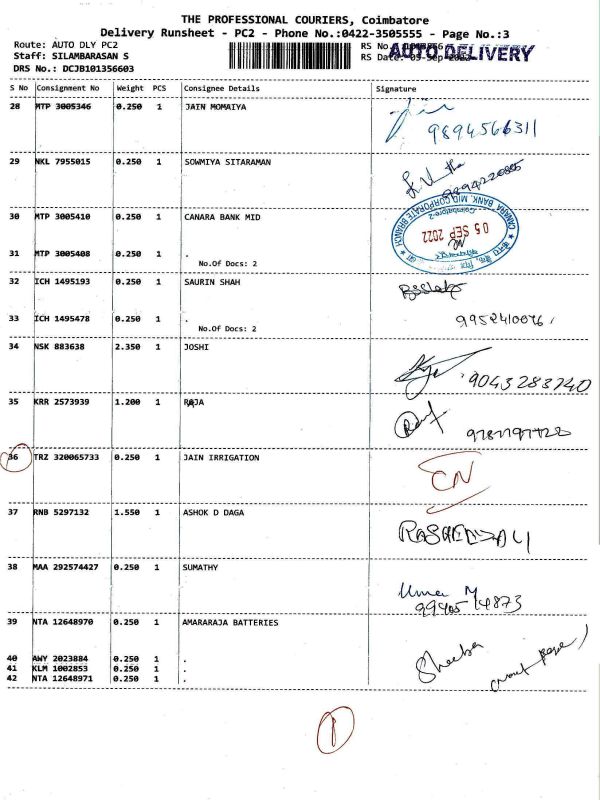 THE PROFESSIONAL COURIERS, Coimbatore
Delivery Runsheet - PC2 - Phone No.:0422-3505555 - Page No.:3
Route: AUTO DLY PC2
RS No.
AUTO DELIVERY
Staff: SILAMBARASAN S
RS Date:
DRS No.: DCJB101356603
S No Consignment No Weight PCS Consignee Details Signature
28 MTP 3005346 0.250 1 JAIN MOMAIYA
9894566311
29 NKL 7955015 0.250 1 SOWMIYA SITARAMAN
30 MTP 3005410 0.250 1 CANARA BANK MID
CANARA BANK, MID CORPORATE BRANCH
Coimbatore-2
05 SEP 2022
31 MTP 3005408 0.250 1 .
No.Of Docs: 2
32 ICH 1495193 0.250 1 SAURIN SHAH
33 ICH 1495478 0.250 1 .
No.Of Docs: 2
34 NSK 883638 2.350 1 JOSHI
9043283740
35 KRR 2573939 1.200 1 RAJA
36 TRZ 320065733 0.250 1 JAIN IRRIGATION
CN
37 RNB 5297132 1.550 1 ASHOK D DAGA
38 MAA 292574427 0.250 1 SUMATHY
Uma M
39 NTA 12648970 0.250 1 AMARARAJA BATTERIES
Sheeba
40 AWY 2023884 0.250 1 .
41 KLM 1002853 0.250 1 .
42 NTA 12648971 0.250 1 .
1